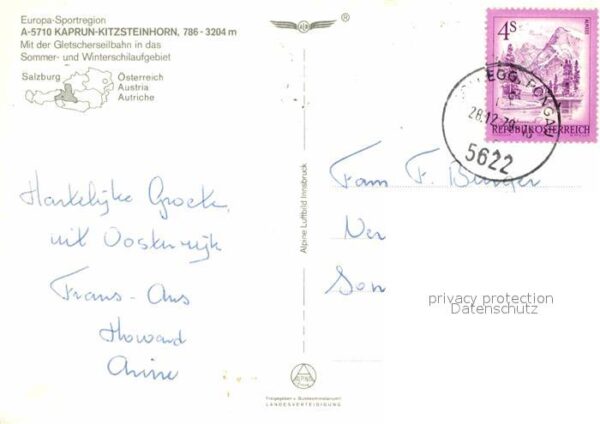 Europa-Sportregion
A-5710 KAPRUN-KITZSTEINHORN, 786 - 3204 m
Mit der Gletscherseilbahn in das
Sommer- und Winterschilaufgebiet
Salzburg
Österreich
Austria
Autriche
Hartelijke Groeten
uit Oostenrijk
Frans-Ans
Howard
Anine
Alpine Luftbild Innsbruck
ALPINE
Freigegeben v. Bundesministerium f.
LANDESVERTEIDIGUNG
4S
REPUBLIK ÖSTERREICH
EGG, PONGAU
28.12.79
5622
Fam F. Burger
privacy protection
Datenschutz